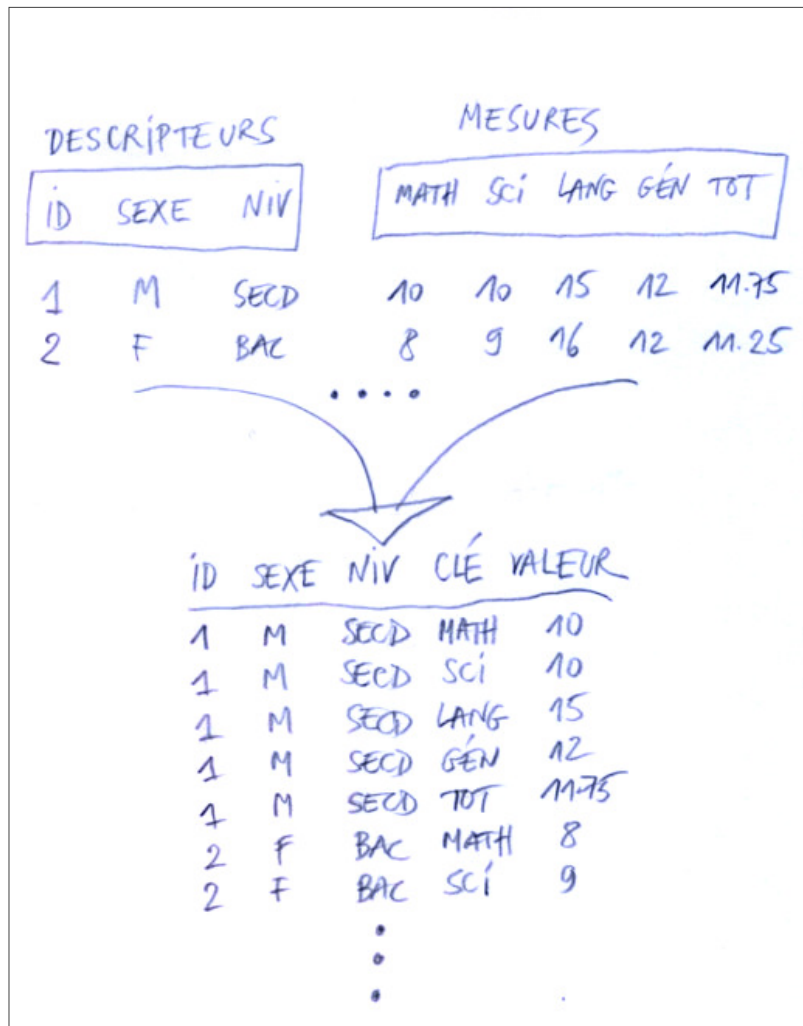 DESCRIPTEURS MESURES
ID SEXE NIV MATH SCI LANG GÉN TOT
1 M SECD 10 10 15 12 11.75
2 F BAC 8 9 16 12 11.25
....
ID SEXE NIV CLÉ VALEUR
1 M SECD MATH 10
1 M SECD SCI 10
1 M SECD LANG 15
1 M SECD GÉN 12
1 M SECD TOT 11.75
2 F BAC MATH 8
2 F BAC SCI 9